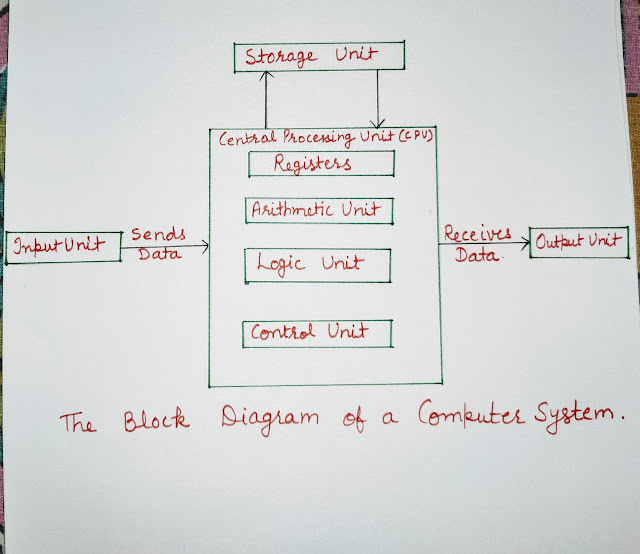 Storage Unit
Central Processing Unit (CPU)
Registers
Arithmetic Unit
Logic Unit
Control Unit
Input Unit
Sends
Data
Receives
Data.
Output Unit
The Block Diagram of a Computer System.